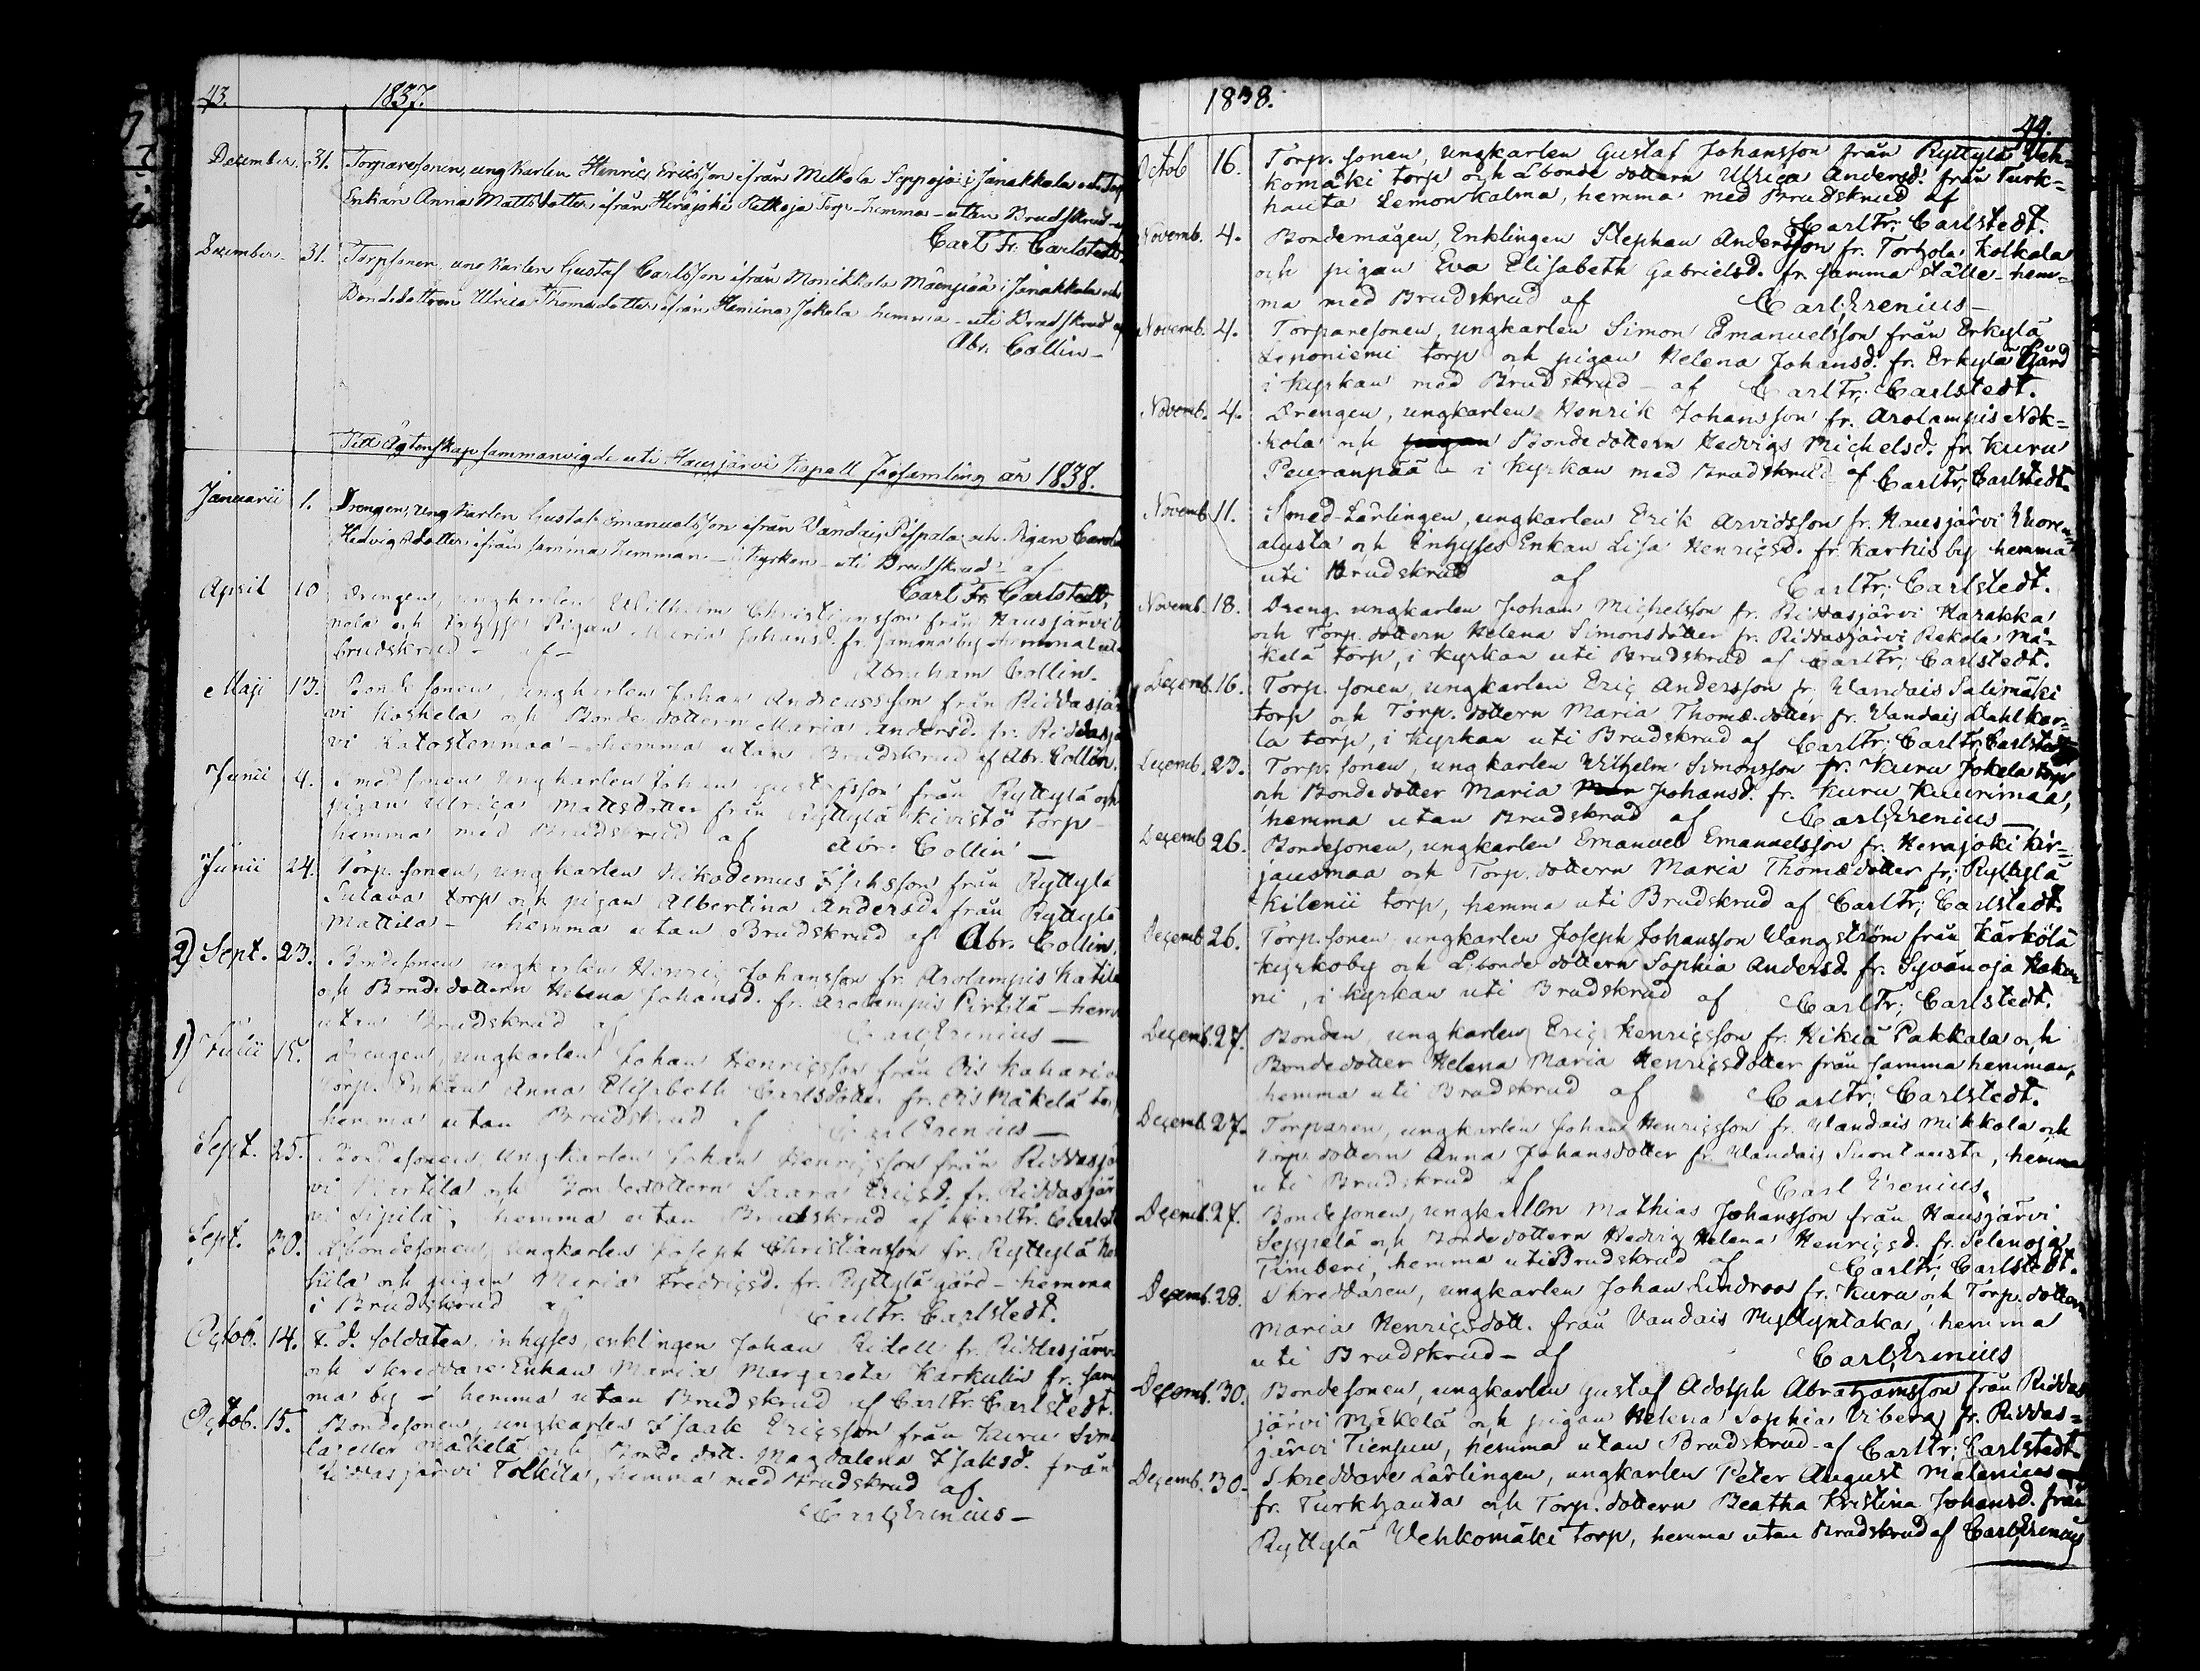 43.
1837.
December. 31. Torparesonen, ungkarlen Henric Ericsson ifrån Melkola Seppojoi i Janakkala och Torp
Enkan Anna Mattsdotter ifrån Herajoki Petkoja Torp - hemma - utan Brudskrud - af
Carl Fr. Carlstedt.
December. 31. Torpsonen, ungkarlen Gustaf Carlsson ifrån Monikkala Mäenpää i Janakkala och
Bondedottren Ulrica Thomædotter ifrån Hemina Jokala hemma - uti Brudskrud af
Abr. Collin -
Till Ägtenskap sammanvigde uti Hausjärvi Kapell Församling år 1838.
Januarii 1. Drengen, ungkarlen Gustaf Emanuelsson ifrån Vandais Pispala och Pigan Carolina
Hedvig dotter ifrån samma hemman - i kyrkan - uti Brudskrud - af -
Carl Fr. Carlstedt.
April 10 Drengen, ungkarlen Wilhelm Christiansson från Hausjärvi
nola och Inhyses Pigan Maria Johansd. fr. samma by hemma uti
brudskrud - af -
Abraham Collin.
Maji 13. Bondesonen, ungkarlen Johan Andreasson från Riddasjär
vi Koskela och Bondedottern Maria Andersd. fr. Riddasjär
vi Latostenmaa - hemma utan Brudskrud af Abr. Collin.
Junii 4. Smedsonen ungkarlen Johan Gustafsson från Ryttylä och
pigan Ulrica Mattsdotter från Ryttylä Kivistö torp -
hemma med Brudskrud af Abr. Collin -
Junii 24. Torp. sonen, ungkarlen Nikodemus Isaksson från Ryttylä
Sulava torp och pigan Albertina Andersd. från Ryttylä
Mattila - hemma utan Brudskrud af Abr. Collin.
2) Sept. 23. Bondesonen ungkarlen Henric Johansson fr. Arolampis Katila
och Bondedottern Helena Johansd. fr. Arolampis Pirtilä - hem
utan Brudskrud af Carl Erenius -
1) Julii 15. Drengen, ungkarlen Johan Henricsson från Ois Kaharia
Torp. Enkan Anna Elisabeth Carlsdotter fr. Ois Mäkelä torp
hemma utan Brudskrud af Carl Erenius -
Sept. 25. Bondesonen, ungkarlen Johan Henricsson från Riddasjär
vi Martila och Bondedottern Saara Ericsd. fr. Riddasjär
vi Sipilä, hemma utan Brudskrud af Carl Fr. Carlst
Sept. 30. Lbondesonen, ungkarlen Joseph Christiansson fr. Ryttylä
hila och pigan Maria Fredricsd. fr. Ryttylä gård - hemma
i Brudskrud af Carl Fr. Carlstedt.
Octob. 14. F. d. soldaten, inhyses, enklingen Johan Ridell fr. Riddasjärvi
och Skreddare Enkan Maria Margareta Karkulin fr. sam
ma by - hemma utan Brudskrud af Carl Fr. Carlstedt.
Octob. 15. Bondesonen, ungkarlen Isaak Ericsson från Kuru Sim
la eller Mäkelä och Bonde dott. Magdalena Isaksd. från
Riddasjärvi Tolkila, hemma med Brudskrud af
Carl Erenius -
1838.
44.
Octob 16. Torp. sonen, ungkarlen Gustaf Johansson från Ryttylä Veh=
komäki torp och Lbonde dottern Ulrica Andersd. från Turk=
hauta Lemonkalma, hemma med Brudskrud af
Carl Fr. Carlstedt.
Novemb. 4. Bondemågen, Enklingen Stephan Andersson fr. Torhola Kolkala
och pigan Eva Elisabeth Gabrielsd. fr. samma ställe - hem=
ma med Brudskrud af Carl Erenius -
Novemb. 4. Torparesonen, ungkarlen Simon Emanuelsson från Erkylä
Leponiemi torp och pigan Helena Johansd. fr. Erkylä Gård
i kyrkan med Brudskrud - af Carl Fr. Carlstedt.
Novemb. 4. Drengen, ungkarlen Henrik Johansson fr. Arolampis Nok=
kola och Bonde dottern Hedvig Michelsd. fr. Kuru
Peuranpää - i kyrkan med Brudskrud af Carl Fr. Carlstedt.
Novemb 11. Smed-Lärlingen, ungkarlen Erik Arvidsson fr. Hausjärvi Vuoren=
alusta och Inhyses Enkan Lisa Henricsd. fr. Karhis by hemma
uti Brudskrud af Carl Fr. Carlstedt.
Novemb. 18. Dreng. ungkarlen Johan Michelsson fr. Riddasjärvi Harakka
och Torp. dottern Helena Simonsdotter fr. Riddasjärvi Rekola Mä=
kelä torp, i kyrkan uti Brudskrud af Carl Fr. Carlstedt.
Decemb. 16. Torp. sonen, ungkarlen Eric Andersson fr. Vandais Salimäki
torp och Torp. dottern Maria Thomæ. dotter fr. Vandais Dahlkar=
la torp, i kyrkan uti Brudskrud af Carl Fr. Carl Fr. Carlstedt
Decemb. 23. Torp. sonen, ungkarlen Wilhelm Simonsson fr. Kuru Jokela torp
och Bondedotter Maria Johansd. fr. Kuru Kuurimaa,
hemma utan Brudskrud af Carl Erenius -
Decemb 26. Bondesonen, ungkarlen Emanuel Emanuelsson fr. Herajoki Kir=
jausmaa och Torp. dottern Maria Thomædotter fr. Ryttylä
Kilenii torp, hemma uti Brudskrud af Carl Fr. Carlstedt.
Decemb. 26. Torp. sonen, ungkarlen Joseph Johansson Wangström från Kärkölä
kyrkoby och Lbonde dottern Sophia Andersd. fr. Syvänoja Haku=
ni, i kyrkan uti Brudskrud af Carl Fr. Carlstedt.
Decemb. 27. Bonden, ungkarlen Eric Henricsson fr. Hikiä Pakkala och
Bondedotter Helena Maria Henricsdotter från samma hemman,
hemma uti Brudskrud af Carl Fr. Carlstedt.
Decemb. 27. Torparen, ungkarlen Johan Henricsson fr. Vandais Mikkola och
Torp. dottern Anna Johansdotter fr. Vandais Suontausta, hemma
uti Brudskrud af Carl Erenius.
Decemb. 27. Bondesonen, ungkarlen Mathias Johansson från Hausjärvi
Seppelä och Bondedottern Hedvig Helena Henricsd. fr. Selenoja
Timberi, hemma uti Brudskrud af Carl Fr. Carlstedt.
Decemb. 28. Skreddaren, ungkarlen Johan Lindroos fr. Kuru och Torp. dottern
Maria Henricsdott. från Vandais Myllyntaka, hemma
uti Brudskrud - af Carl Erenius
Decemb. 30. Bondesonen, ungkarlen Gustaf Adolph Abrahamsson från Riddas
järvi Mäkelä och pigan Helena Sophia Viberg fr. Riddas=
järvi Tiensuu, hemma utan Brudskrud - af Carl Fr. Carlstedt.
Decemb. 30. Skreddare Lärlingen, ungkarlen Peter August Malenius
fr. Turkhauta och Torp. dottern Beatha Kristina Johansd. från
Ryttylä Vehkomäki torp, hemma utan Brudskrud af Carl Erenius